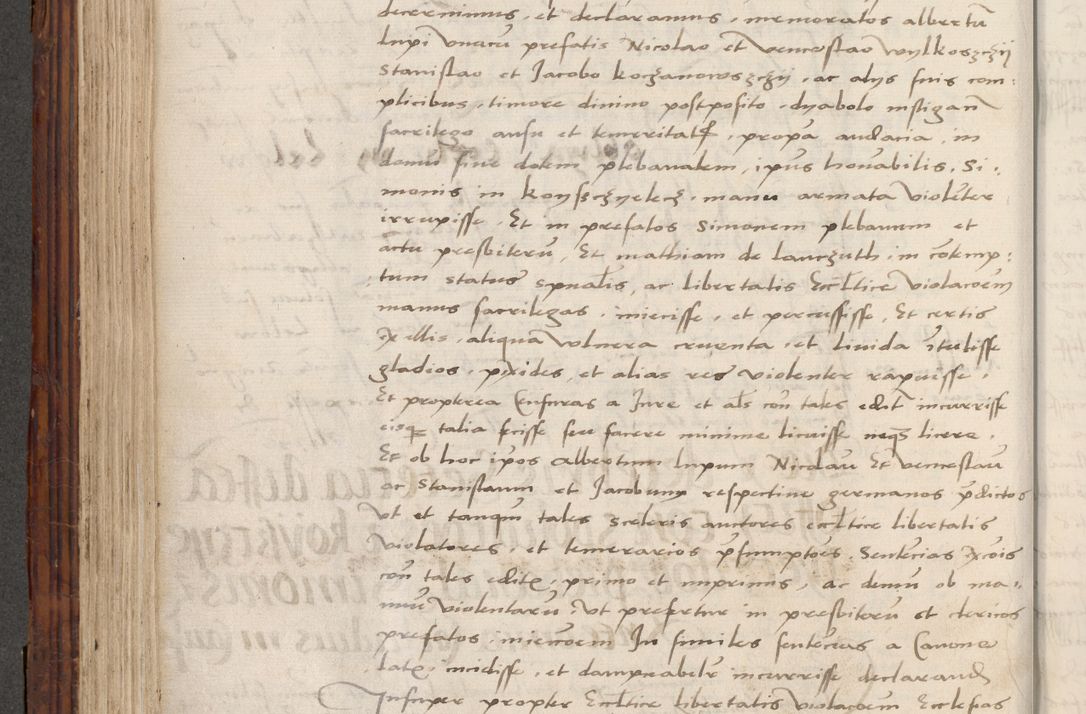 decernimus, et declaramus, memoratos albertū
lupi vnacū prefatis Nicolao et venceslao wylkoszczij
Stanislao et Jacobo koczanowoszczij, ac alijs suis com:
plicibus, timore diuino postposito, dyabolo instigan̄
sacrilego ausu et temeritate, propa audacia, in
domū siue dotem plebanalem, ipius honorabilis, Si:
monis in konssczyelecz, manu armata violēter
irrupisse, Et in prefatos Simonem plebanum et
actu presbiterū, Et mathiam de lanczuth, in cōtemp:
tum status spūalis, ac libertatis Eccltice violacoem
manus sacrilegas, iniecisse, et percussisse, Et certis
aliqua vulnera cruenta, et liuida ītulisse
gladios, pixides, et alias res violenter rapuisse,
Et propterea Censuras a Jure et als con tales edit incurrisse
eisque talia fecisse seu facere minime licuisse neque licere.
Et ob hoc ipos Albertum lupum Nicolau Et venceslau
ac Stanislaum et Jacobum respectiue germanos pdictos
Vt et tanqm tales sceleris auctores eccltice libertatis
violatores, et temerarios psumptores, Sentecias excois
con tales edite, primo et imprimis, ac demū ob ma:
nuū violentarū, Vt prefertur in presbiterū et clericos
prefatos, iniecoem In similes sentecias a Canone
late, incidisse, et dampnabelr incurrisse declarand
Insuper propter Eccltice libertatis violacoem Ecclesias